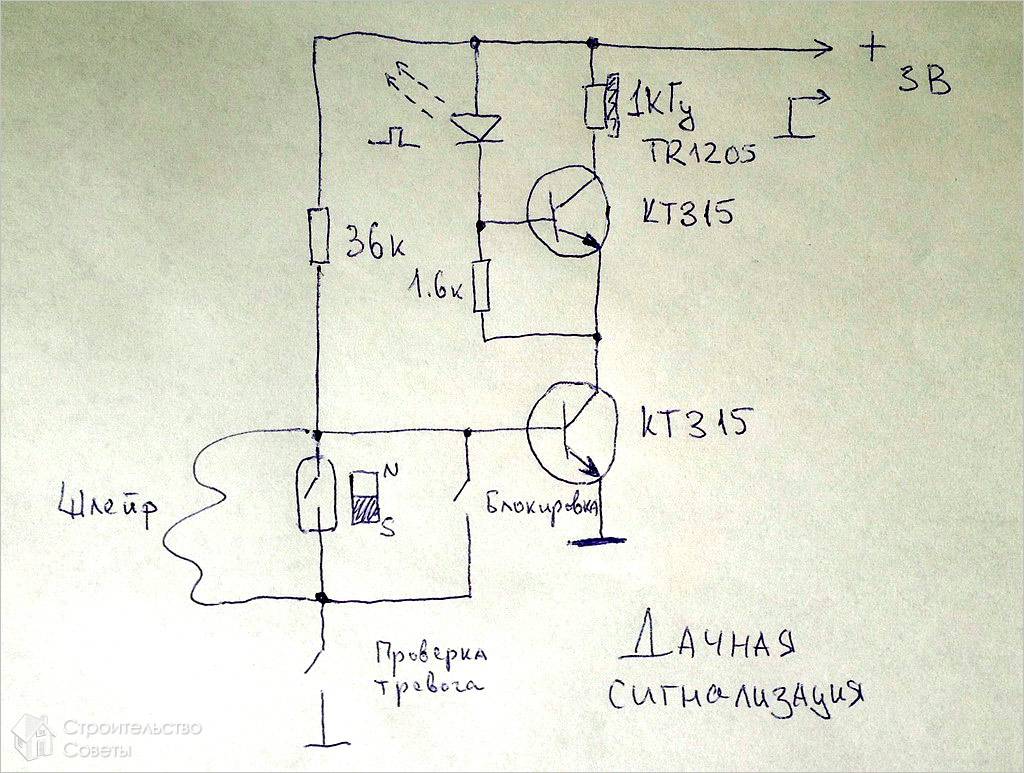 +
3В
1кГц
TR1205
КТ315
36к
1.6к
КТ315
N
S
Шлейф
Блокировка
Проверка
тревога
Дачная
сигнализация
Строительство
Советы